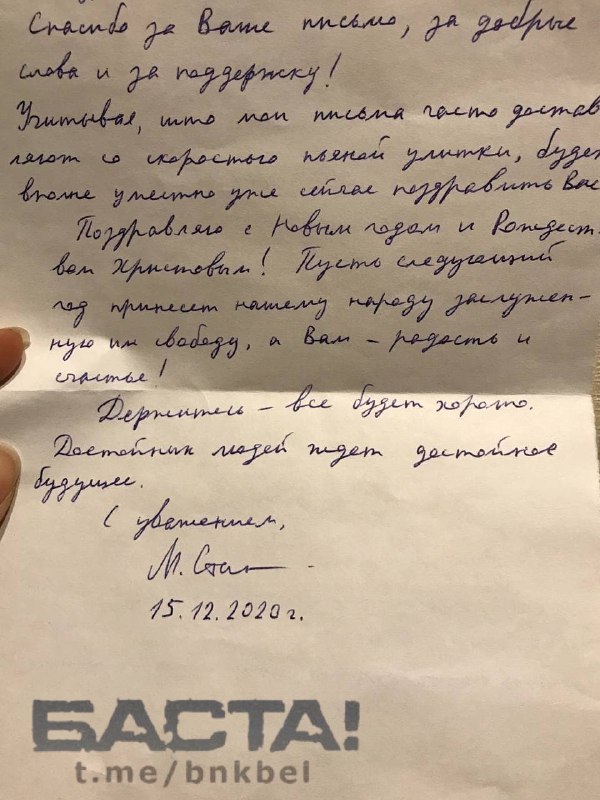 Спасибо за Ваше письмо, за добрые
слова и за поддержку!
Учитывая, што мои письма часто достав
ляют со скоростью пьяной улитки, будет
вполне уместно уже сейчас поздравить Вас
Поздравляю с Новым годом и Рождест-
вом Христовым! Пусть следующий
год принесет нашему народу заслужен-
ную им свободу, а Вам – радость и
счастье!
Держитесь – все будет хорошо.
Достойных людей ждет достойное
будущее.
С уважением,
М. Стат
15.12.2020г.
БАСТА!
t.me/bnkbel